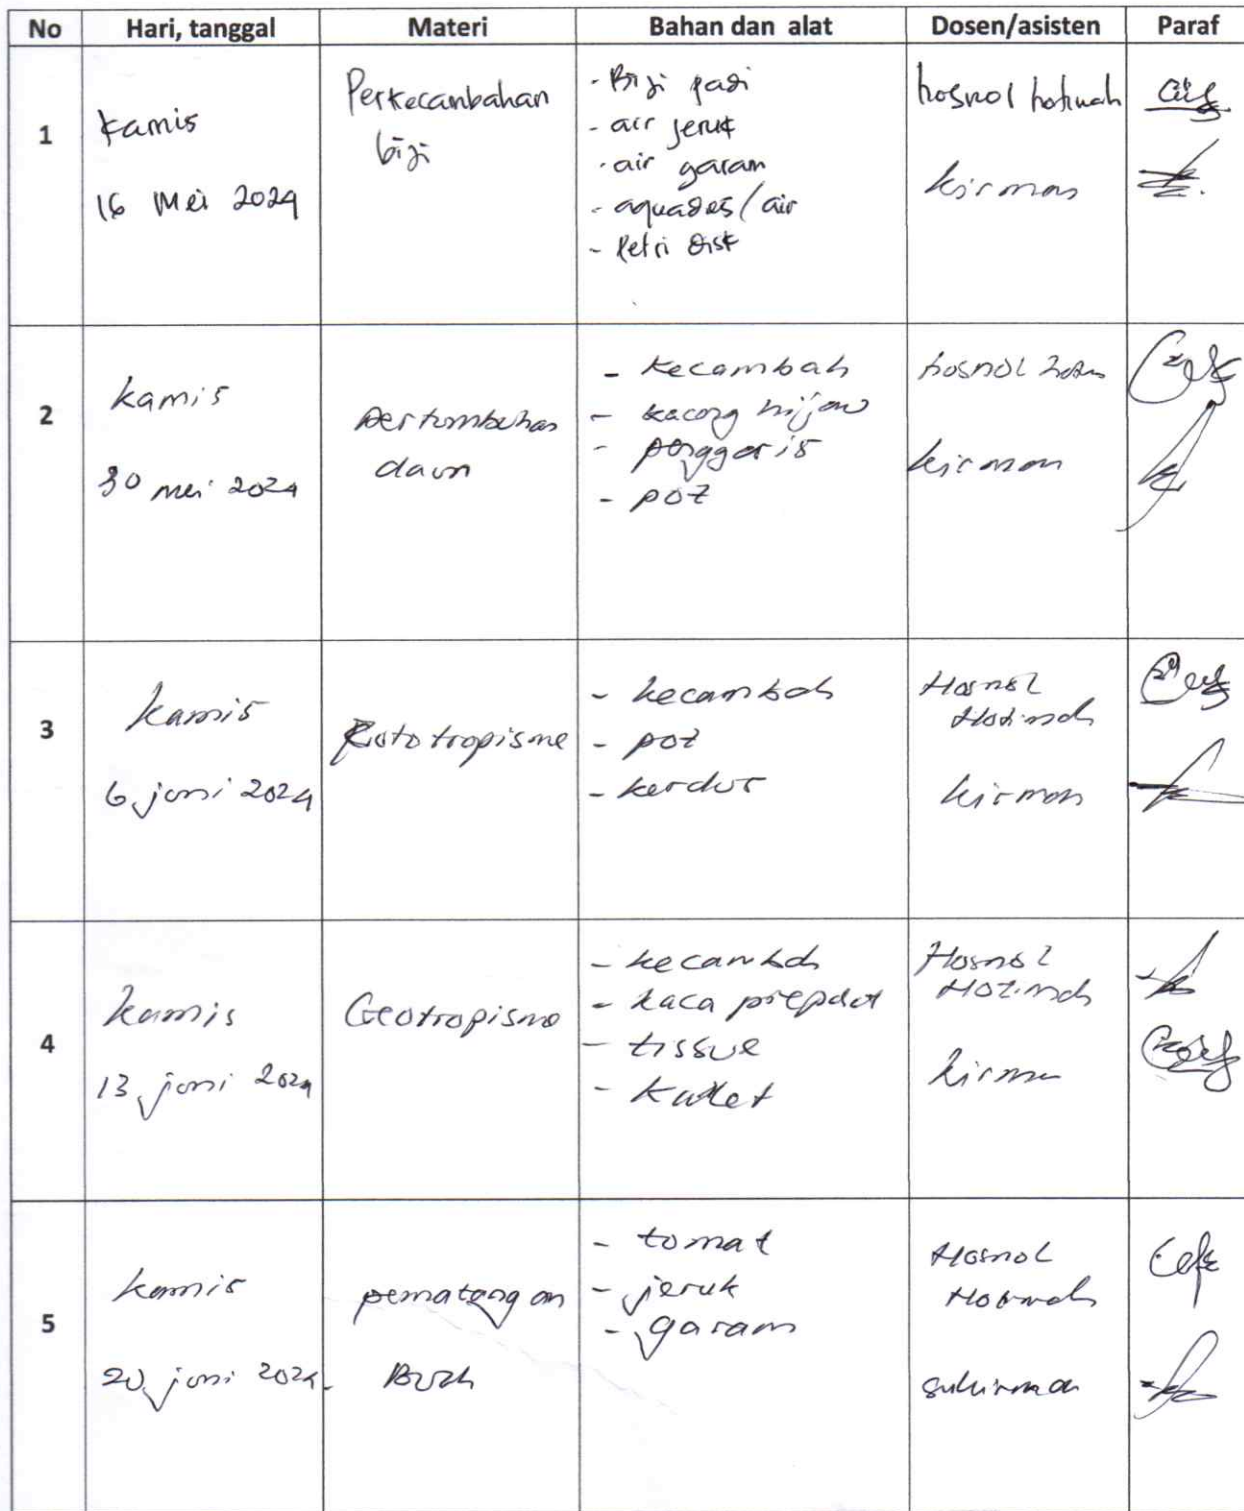 No Hari, tanggal Materi Bahan dan alat Dosen/asisten Paraf
1
Kamis
16 Mei 2024
Perkecambahan
biji
- Biji padi
- air jeruk
- air garam
- aquades/air
- Petri disk
hosnol hotimah
kirman
2
kamis
30 mei 2024
pertumbuhan
daun
- kecambah
- kacang hijau
- penggaris
- pot
hosnol
kirman
3
kamis
6 juni 2024
Fototropisme
- kecambah
- pot
- kardus
Hosnol
Hotimah
kirman
4
kamis
13 juni 2024
Geotropisme
- kecambah
- kaca prepdat
- tissue
- karet
Hosnol
Hotimah
kirman
5
kamis
20 juni 2024
pematangan
Buah
- tomat
- jeruk
- garam
Hosnol
Hotimah
sukirman